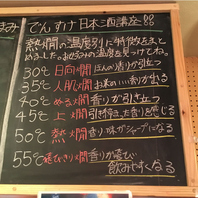 でんすけ日本酒講座
熱燗の温度別に特徴をまと
めました。お好みの温度を見つけてね。
30℃ 日向燗 ほんのり香りが引立つ
35℃ 人肌燗 お米のいい香りが出る
40℃ ぬる燗 香りが引き立つ
45℃ 上燗 引き締った香りを感じる
50℃ 熱燗 香り味がシャープになる
55℃ 飛びきり燗 香りが
飲みやすくなる